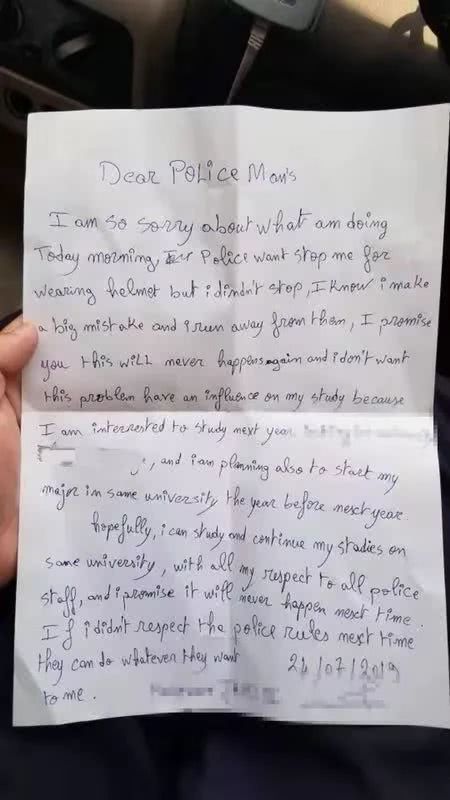 Dear Police Man's
I am so sorry about what am doing
Today morning, Police want stop me for
wearing helmet but i dimdn't stop, I know i make
a big mistake and i run away from them, I promise
you this will never happens again and i don't want
this problem have an influence on my study because
I am interrested to study next year
, and i am planning also to start my
major in same university the year before next year.
hopefully, i can study and continue my studies on
same university, with all my respect to all police
staff, and i promise it will never happen next time.
If i didn't respect the police rules next time
they can do whatever they want
to me.
24/07/2019